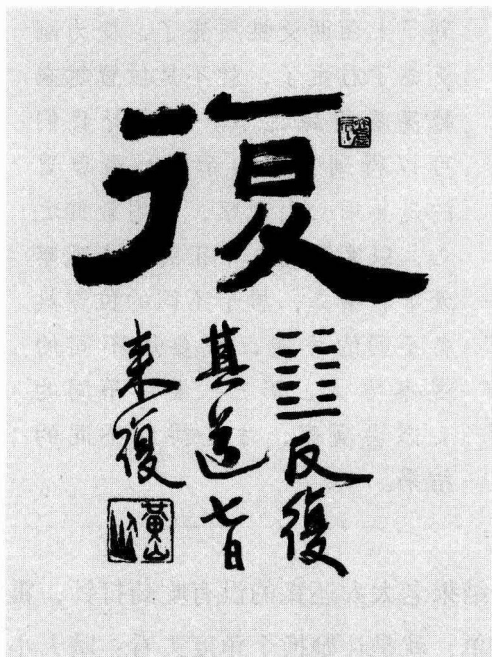 復
䷗反復
其道七日
来復
黄山